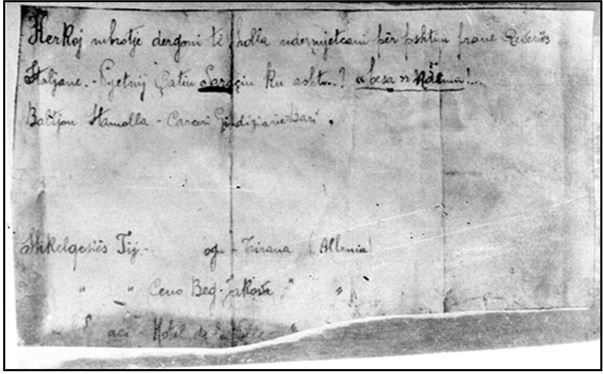 Her Koj mbrotje dergoni të holla ndermjetsani për pshtim prane Qeveris
Italjane. - Pyetnij Gatin Saraqin ku asht..? « besa » Ndëma!...
Baltjon Stamolla - Carceri Giudiziarie Bari.
Shkelqesiës Tij - ogu - Tirana (Albania)
" " Ceno Beg - Jakova " "
aci - Hotel de